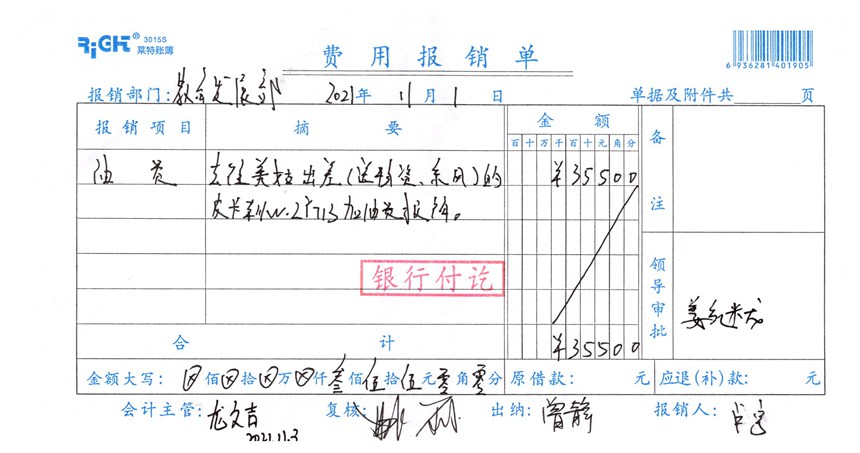 RiGHT® 3015S
莱特账簿
费用报销单
6 936281 401905
报销部门: 教育发展部 2021年 11月 1日 单据及附件共 页
报销项目 摘要 金额 备注
百十万千百十元角分
油费 去往美拉出差(送物资、采风)的 ¥35500
皮卡车 加油费报销。
银行付讫
领导审批
合计 ¥35500
金额大写: 佰 拾 万 仟叁佰伍拾伍元零角零分 原借款: 元 应退(补)款: 元
会计主管: 龙文吉 复核: 出纳: 曾静 报销人:
2021.11.3